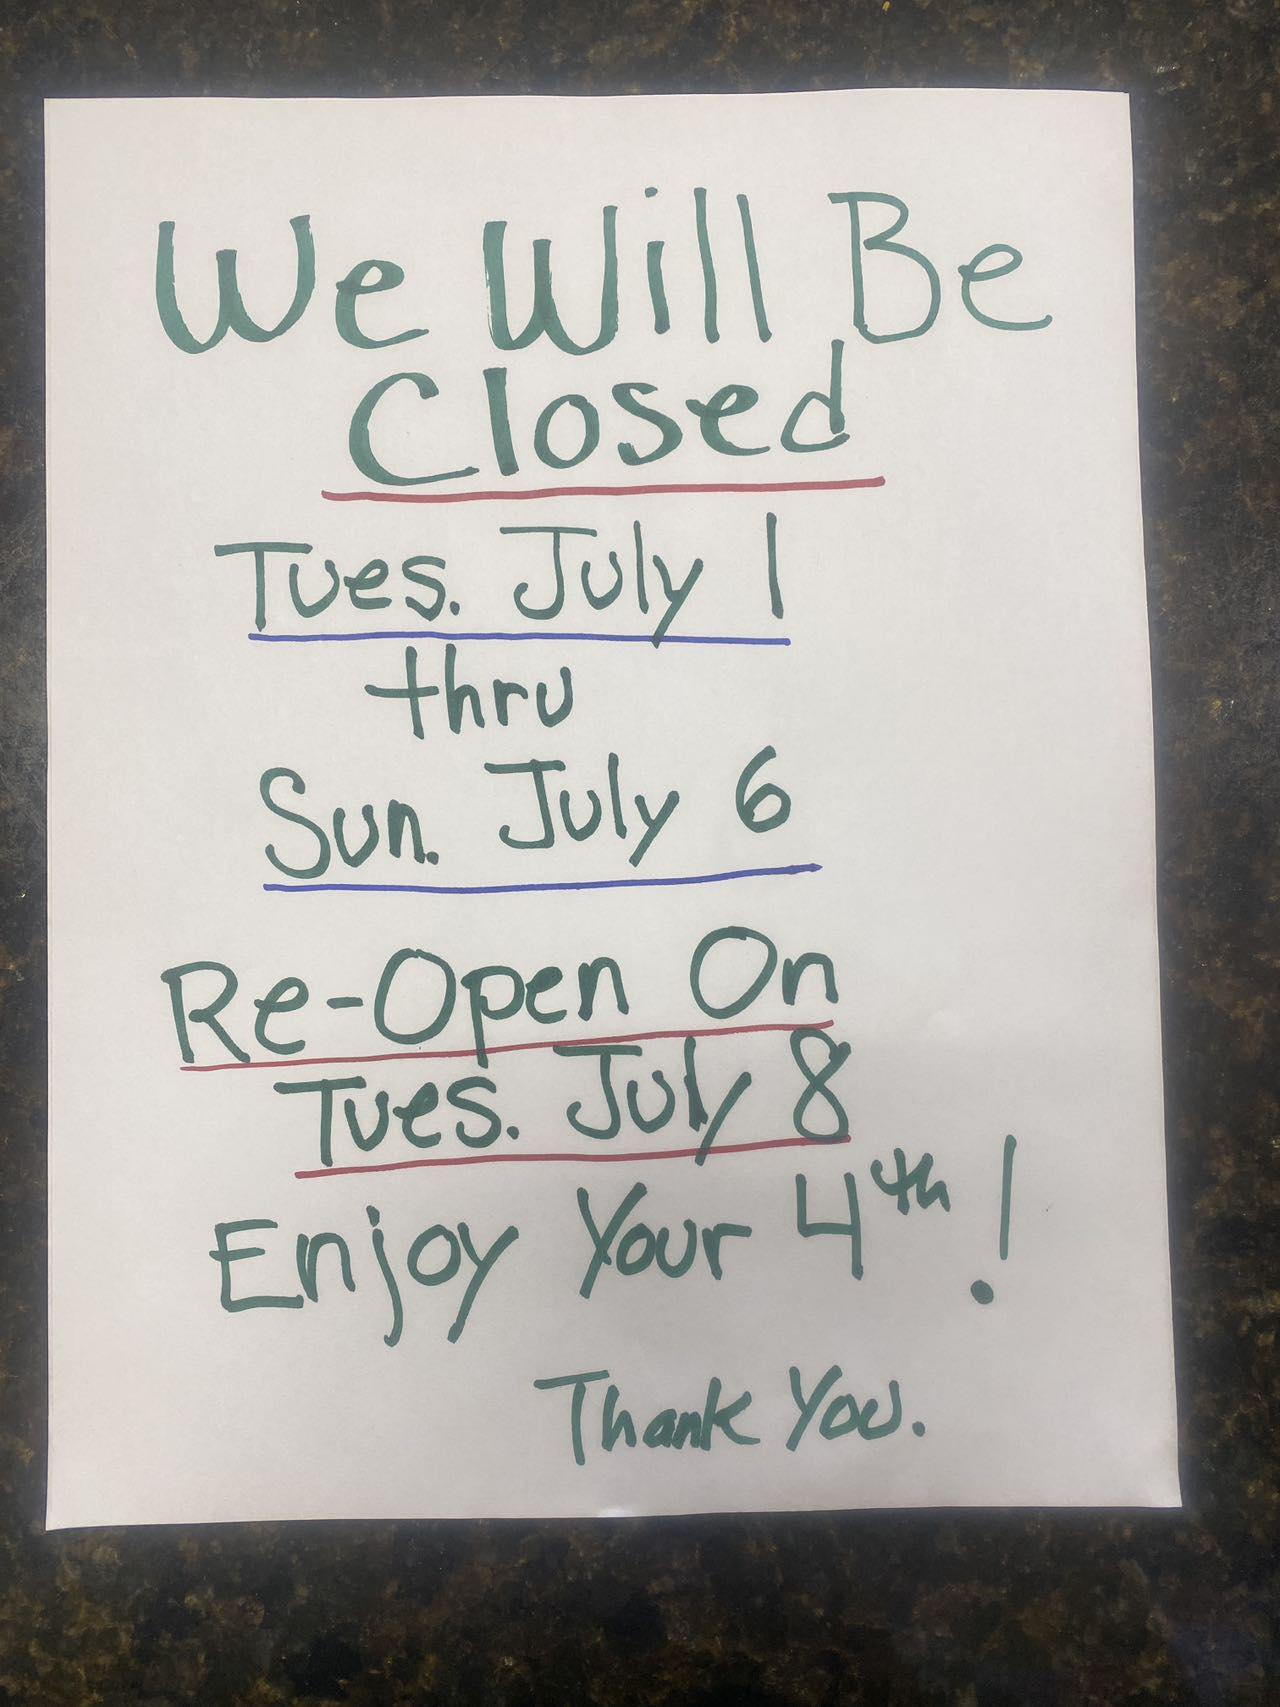 We Will Be
Closed
Tues. July 1
thru
Sun. July 6
Re-Open On
Tues. July 8
Enjoy Your 4th!
Thank You.